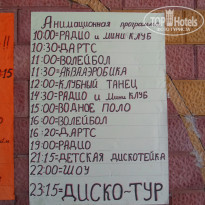 TopHotels
Анимационная программа
10:00=РАДИО и МИНИ КЛУБ
10:30=ДАРТС
11:00=ВОЛЕЙБОЛ
11:30=АКВААЭРОБИКА
12:00=КЛУБНЫЙ ТАНЕЦ
14:30=РАДИО и МИНИ КЛУБ
15:00=ВОДНОЕ ПОЛО
16:00=ВОЛЕЙБОЛ
16:20=ДАРТС
19:00=РАДИО
21:15=ДЕТСКАЯ ДИСКОТЕЙКА
22:00=ШОУ
23:15=ДИСКО-ТУР